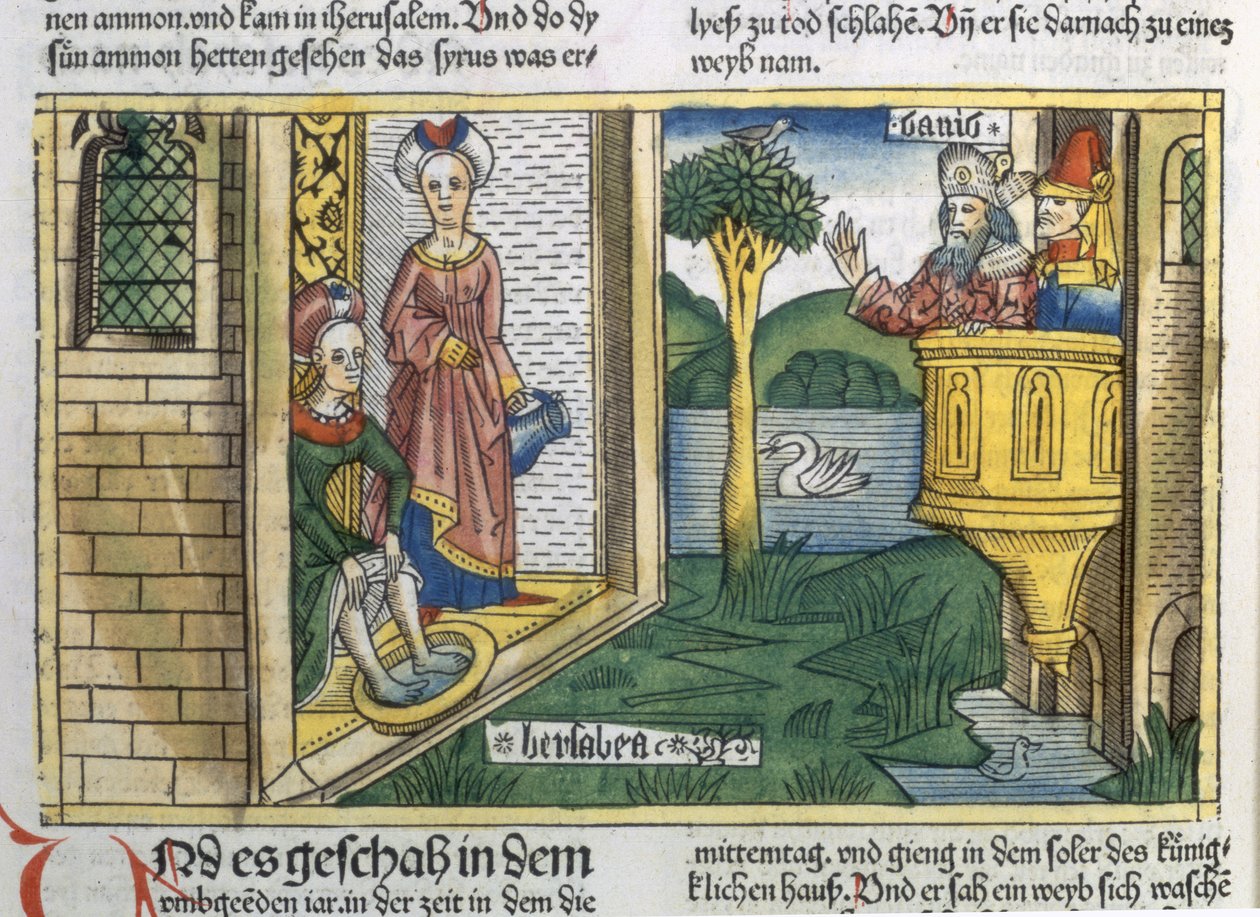 nen ammon. vnd kam in iherusalem. Vnd do dy
sůn ammon hetten gesehen das syrus was er⸗
lyeß zu tod schlahē. Vn̄ er sie darnach zu einez
weyb nam.
·david *
* bersabea
VNd es geschah in dem
vmbgeēden iar. in der zeit in dem die
mittemtag. vnd gieng in dem soler des kůnig⸗
klichen hauß. Vnd er sah ein weyb sich waschē